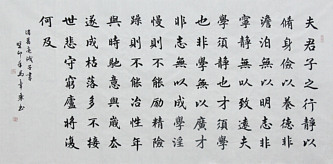 夫君子之行靜以
修身儉以養德非
澹泊無以明志非
寧靜無以致遠夫
學須靜也才須學
也非學無以廣才
非志無以成學淫
慢則不能勵精險
躁則不能冶性年
與時馳意與歲去
遂成枯落多不接
世悲守窮廬將復
何及
諸葛亮誡子書
癸卯年